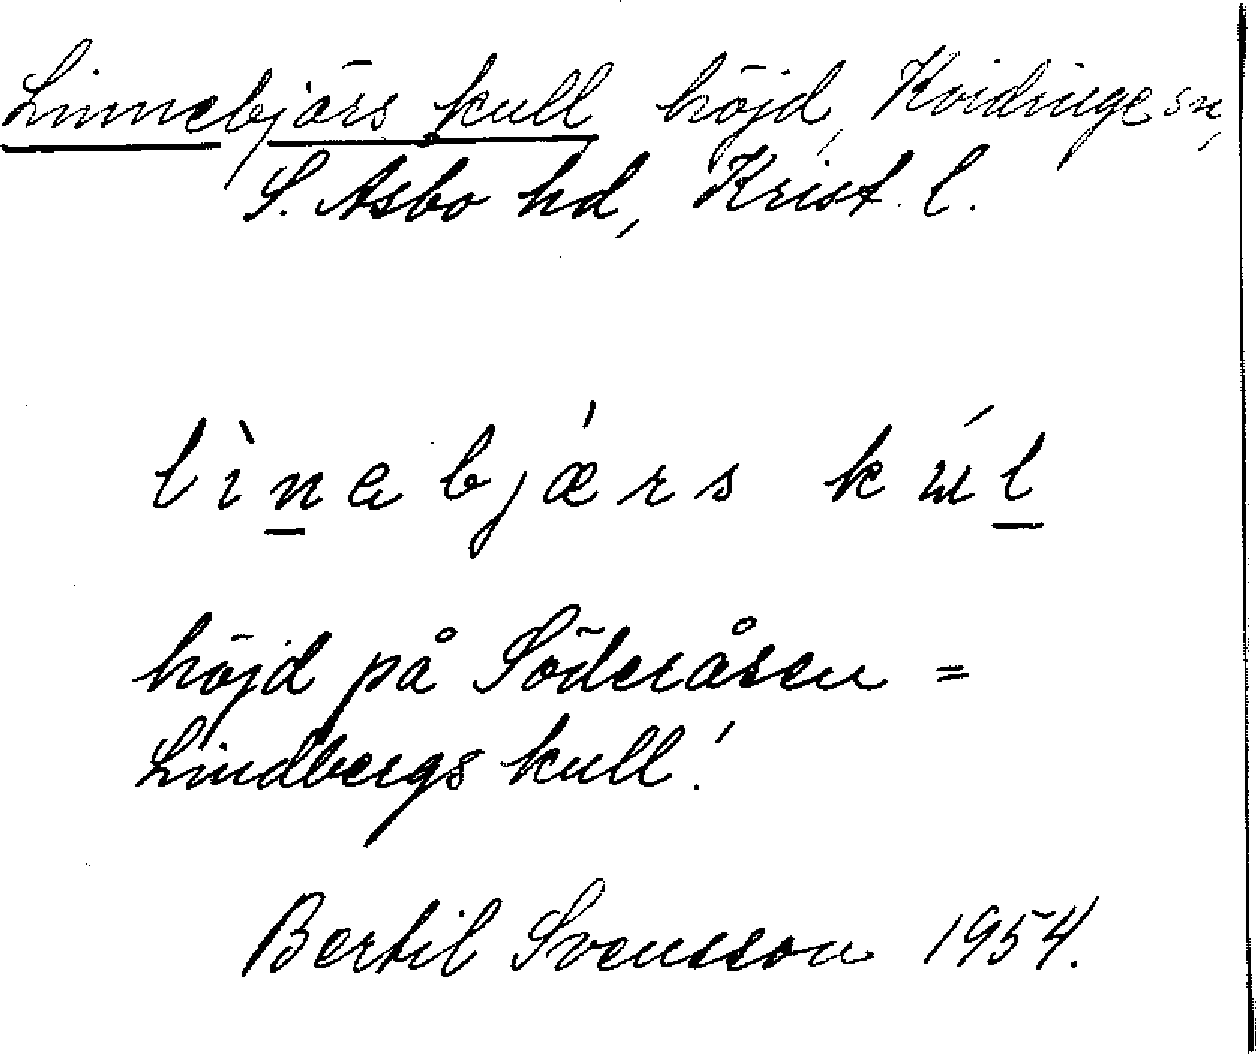 Linnebjärs kull höjd, Kvidinge sn,
S. Åsbo hd, Krist. l.
lìnabjǽrs kúl
höjd på Söderåsen =
Lindbergs kull!
Bertil Svensson 1954.